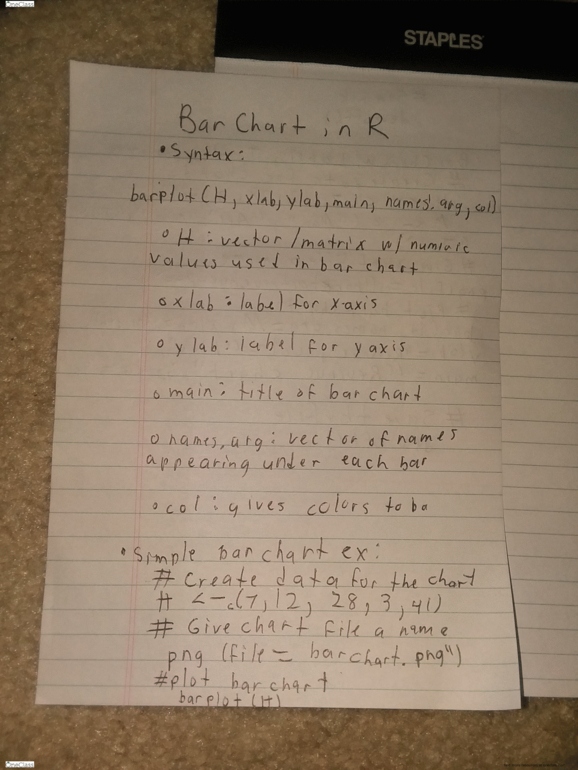 OneClass
STAPLES
Bar Chart in R
• Syntax:
barplot (H, xlab, ylab, main, names. arg, col)
o H : vector / matrix w/ numeric
values used in bar chart
o xlab : label for x-axis
o ylab : label for y axis
o main : title of bar chart
o names, arg : vector of names
appearing under each bar
o col : gives colors to ba
• Simple bar chart ex:
# Create data for the chart
H <- c(7, 12, 28, 3, 41)
# Give chart file a name
png (file = barchart.png")
#plot bar chart
barplot (H)
OneClass